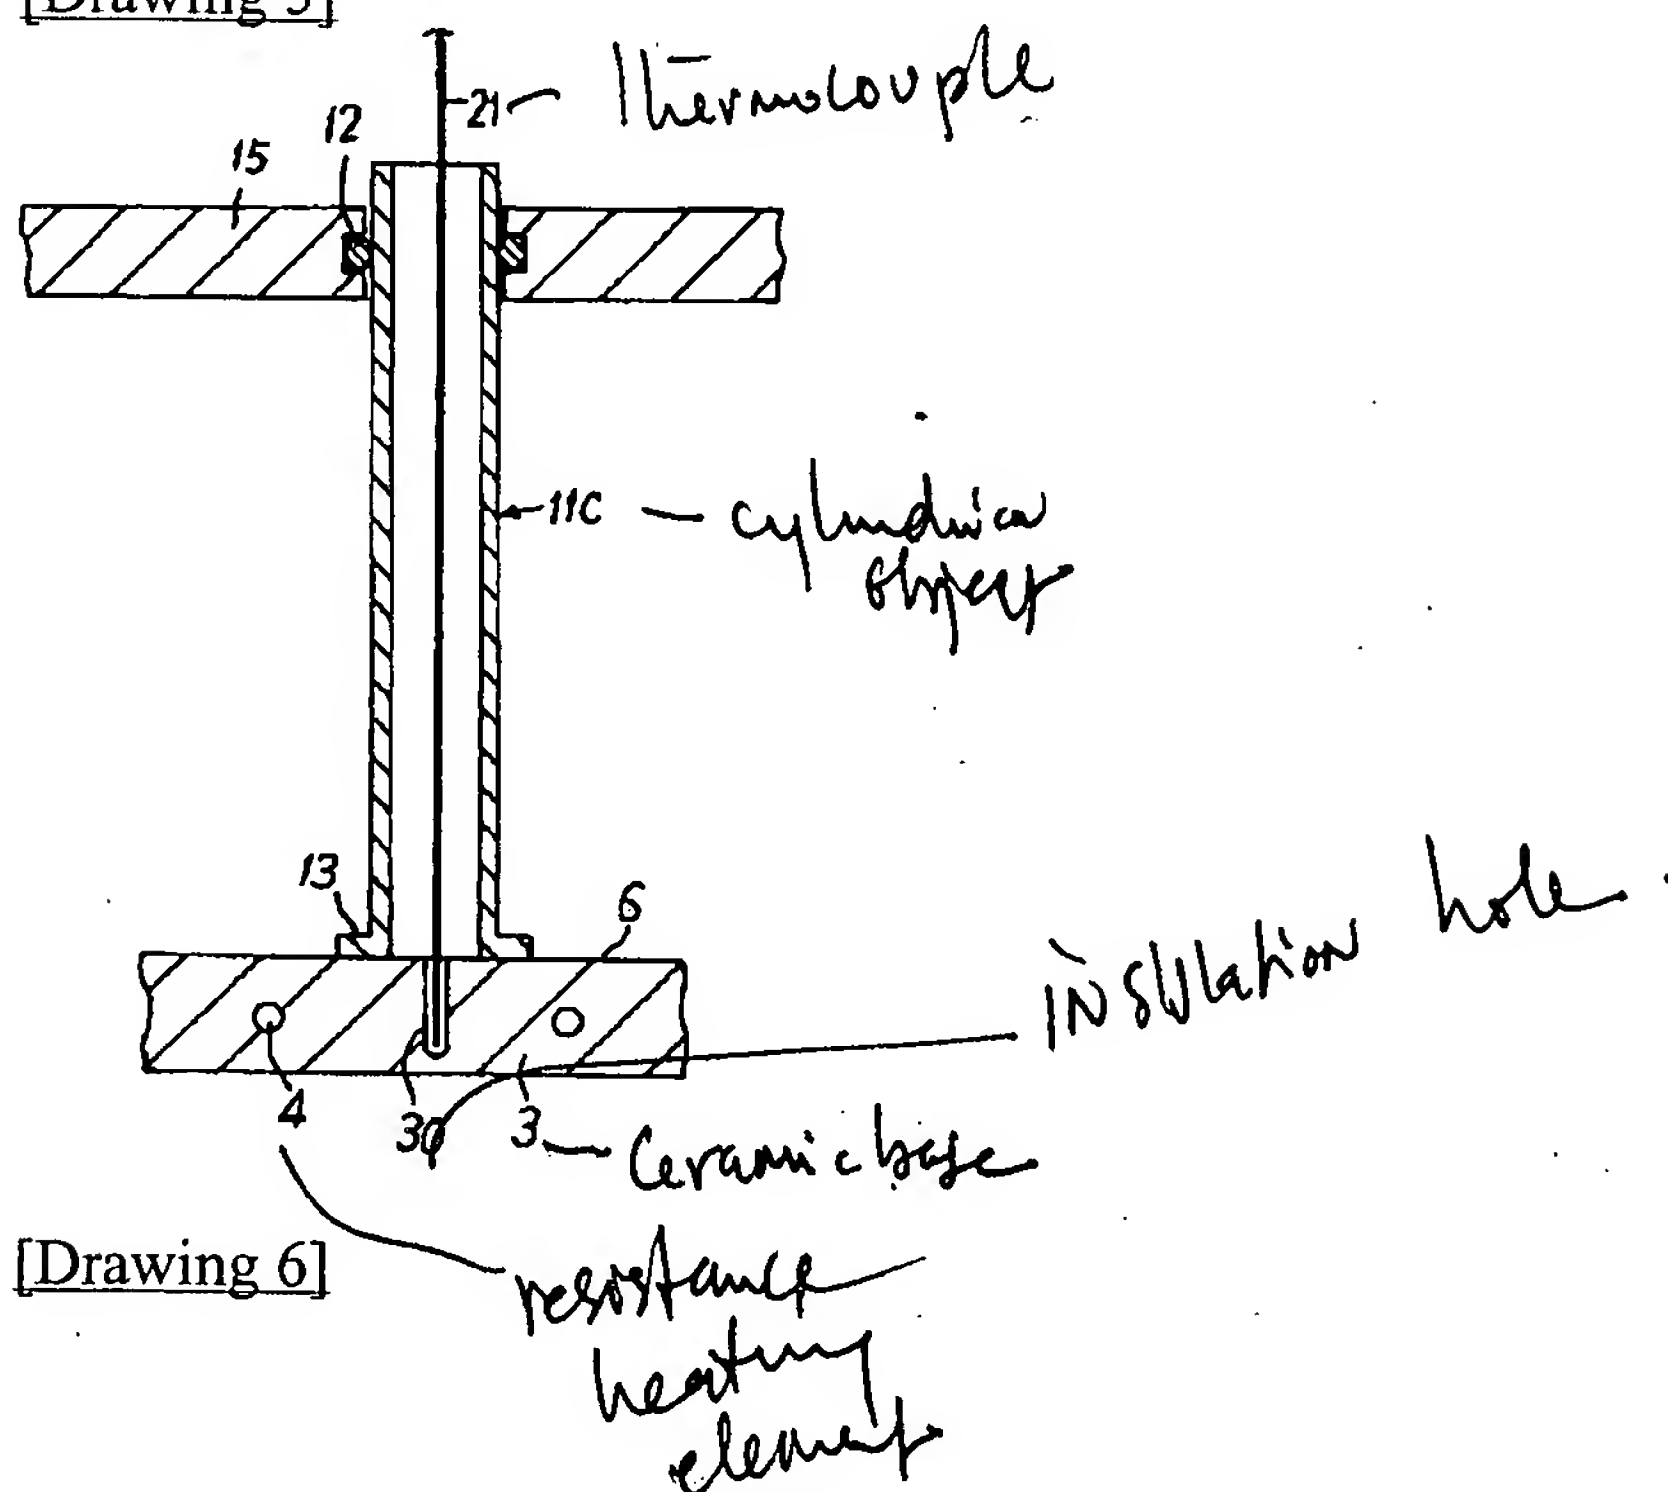 [Drawing 5]
21 Thermocouple
12
15
11C cylindrical
object
13
6
insulation hole
4
30
3 Ceramic base
[Drawing 6]
resistance
heating
element